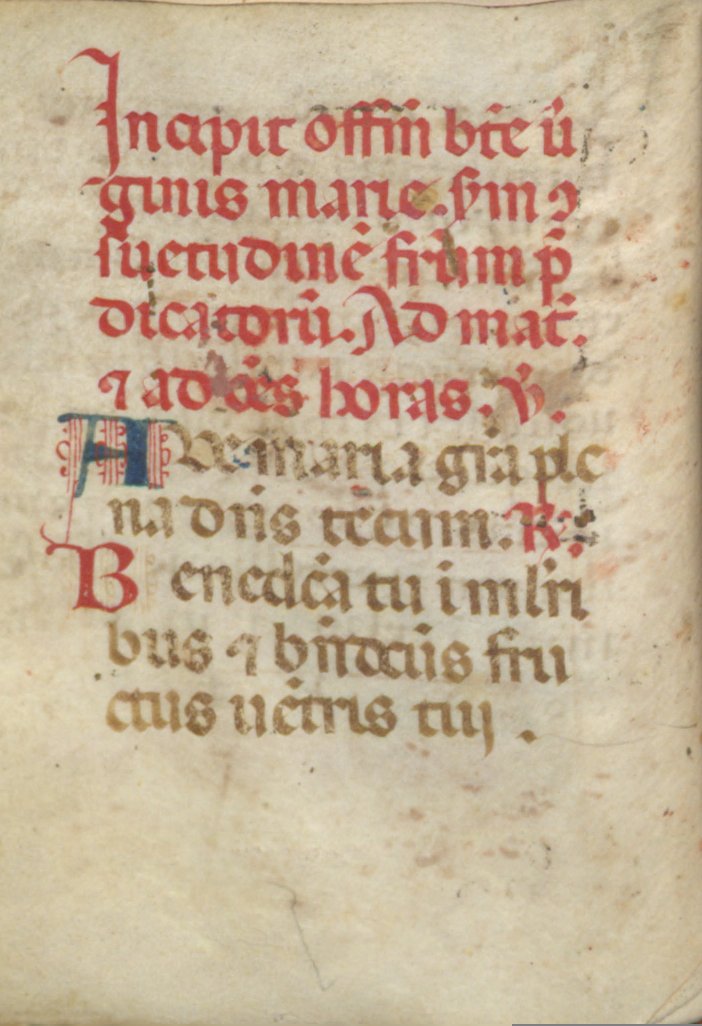 Incipit offiꝫ bt̄e ū
ginis marie. ẜm ꝯ
suetudinē fr̄um p̄
dicatorū. Ad mat̄.
⁊ ad oēs horas. ℣.
Ave maria gr̄a ple
na dn̄s tecum. ℞.
Benedc̄a tu i ml̄ri
bus ⁊ bn̄dc̄us fru
ctus uētris tui.